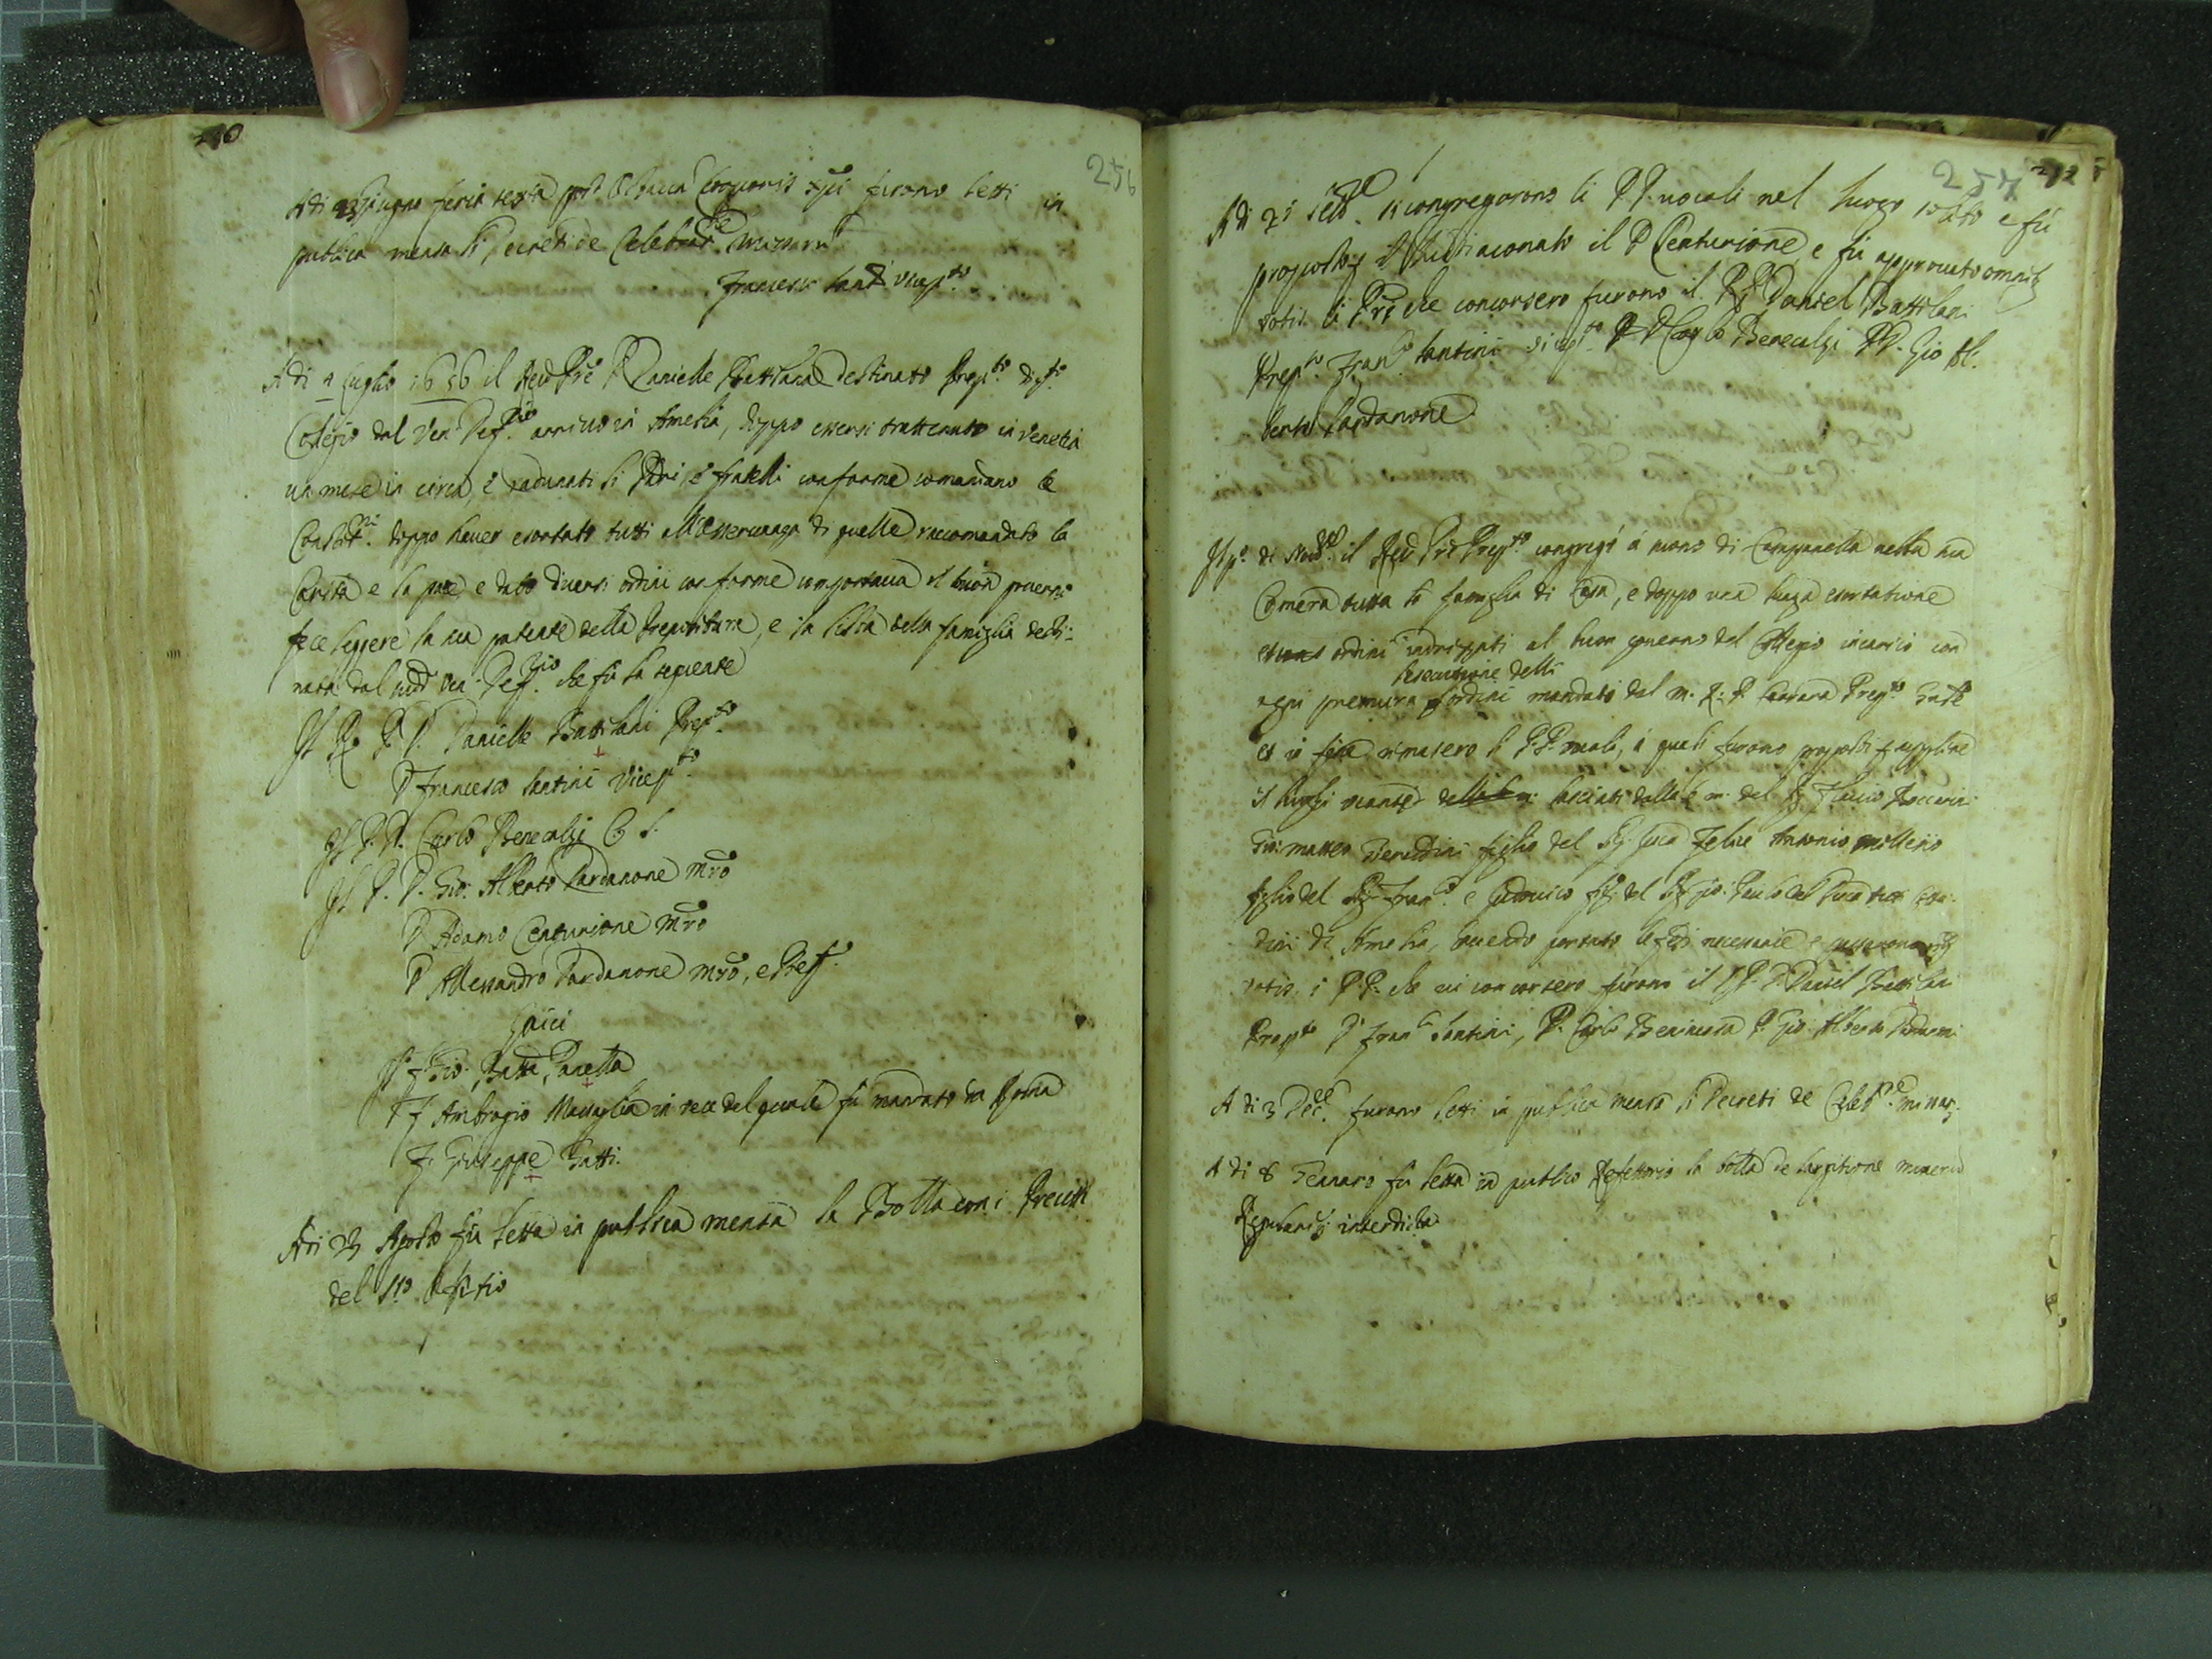 270
256
Adi 23 Giugno feria sexta post Octava Corporis Xpi furono letti in
publica mensa li Decreti de Celebrat.e Missarum
Francesco Santini Vicep.to
Adi 4 Luglio 1656 il Rev Pre D Danielle Battilana destinato Prep.to di q.to
Collegio dal Ven Deff.rio arrivò in Amelia, doppo essersi trattenuto in Venetia
un mese in circa, e radunati li Padri, e fratelli conforme comandano le
Constit.ni doppo haver esortato tutti all'osservanza di quelle raccomandato la
Carità e la pace, e dato diversi ordini conforme comportava il buon governo
fece leggere la sua patente della Prepositura, e la lista della famiglia desti-
nata dal sud Ven Deff.rio che fù la seguente
Il R. P. D. Danielle Battilani Prep.to
D Francesco Santini Vicep.to
Il P. D. Carlo Benealzi C. S.
Il P. D. Gio: Alberto Pardanone mro
D Adamo Centurione Mro
D Allessandro Pardanone mro, e Pref.
Laici
Il f. Gio. Batta Panetta
Il f Ambrogio Massaglia in vece del quale fù mandato da Roma
F. Giuseppe Gatti.
Adi 23 Agosto fù letta in publica mensa la Bolla con i Precetti
del Sto Offitio
257
272
Adi 25 Setb. si congregorono li PP. vocali nel luogo solito e fù
proposto al Diaconato il D Centurione, e fù approvato omnib
votis. li Pri che concorsero furono il P. D Daniel Battilani
Prep.to Fran.co Santini vicep.to P D Carlo Benealzi P D. Gio Al-
berto Pardanone
Il p.o di Nov.e il Rev Pre Prep.to congregò à suono di Campanella nella sua
Camera tutta la famiglia di Casa, e doppo una longa esortatione
ordini indrizzati al buon governo del Collegio incaricò con
l'esecutione delli
ogni premura ordini mandati dal m. R. P. Prep.to Gnle
et in fine rimasero li P.P. vocali, à quali furono proposti
il luoghi vacante lasciati dalla b. m. del Sig Flavio
Gio: matteo figlio del Sig. Luca Felice Antonio
figlio del Sig Fran.co e Ludovico fig. del Sig gio: Paulo
dini di Amelia, havendo portato le fedi necessarie e
votis. i PP. che vi concorsero furono il P. D. Daniel Battilani
Prep.to D. Fran.co Santini, D. Carlo P. Gio: Alberto
A di 3 Dec.e furono letti in publica mensa li Decreti de Celeb.ne missar.
A di 8 Gennaro fù letta in publico Refettorio la bolla de largitione munerum
Regularib. interdicta